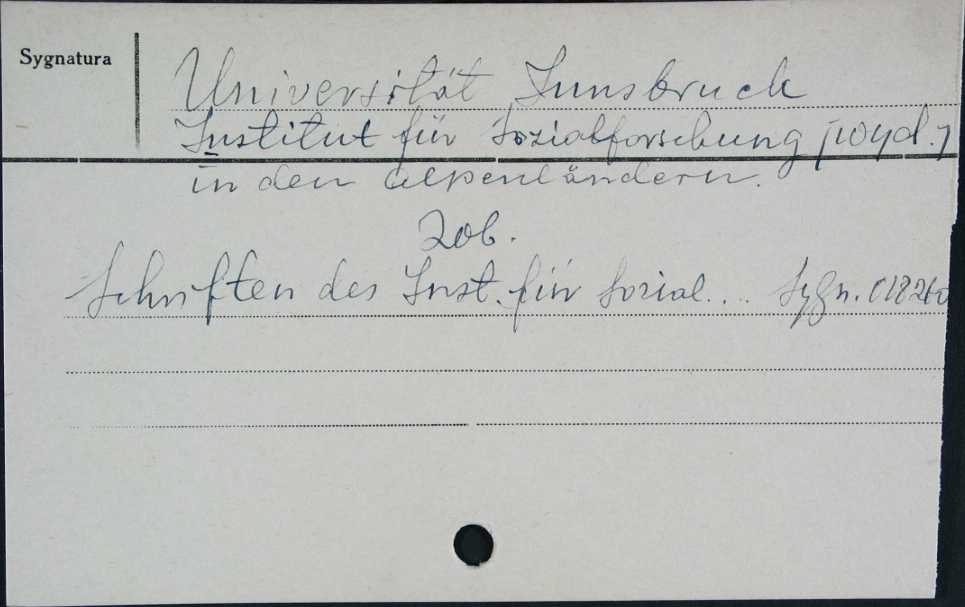 Sygnatura
Universität Innsbruck
Institut für Sozialforschung [wyd.]
in den Alpenländern.
Zob.
Schriften des Inst. für Sozial... Sygn. 018260